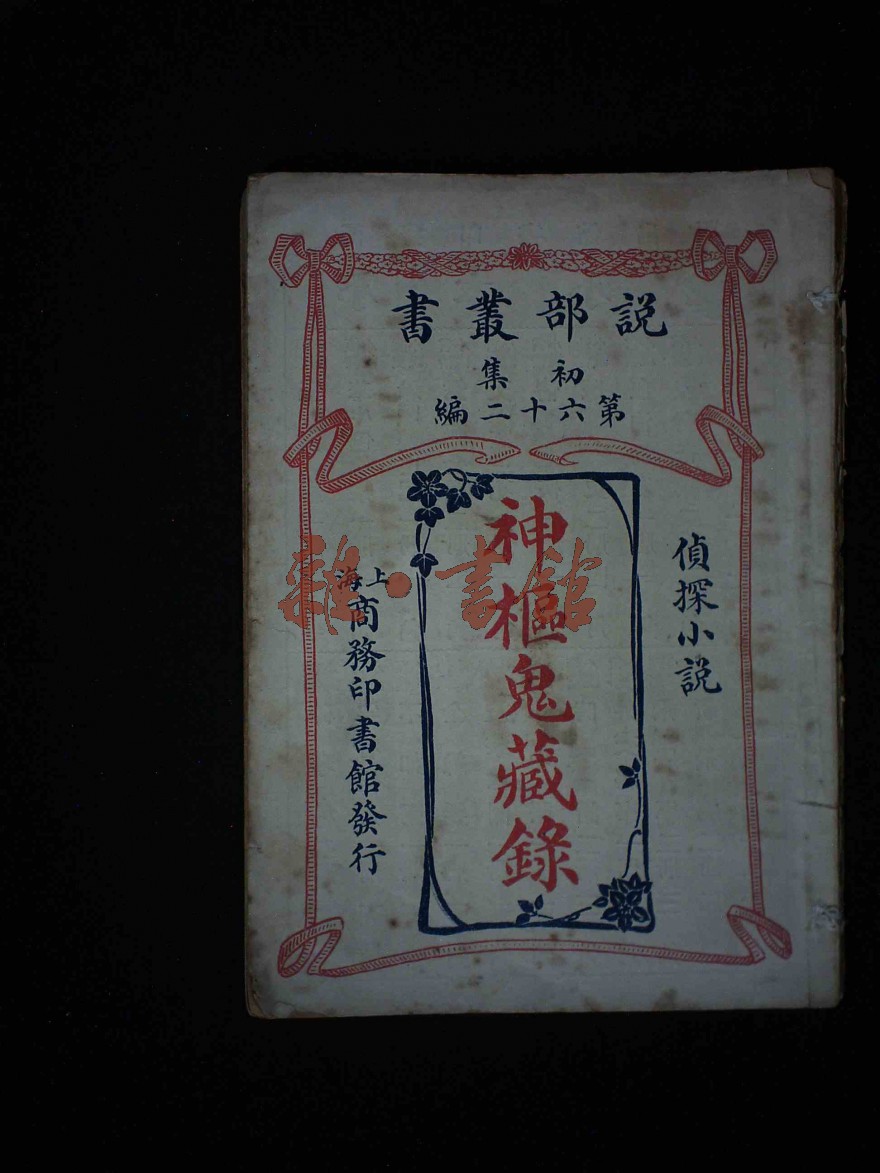 說部叢書
初集
第六十二編
偵探小說
神樞鬼藏錄
上海商務印書館發行
雜·書館